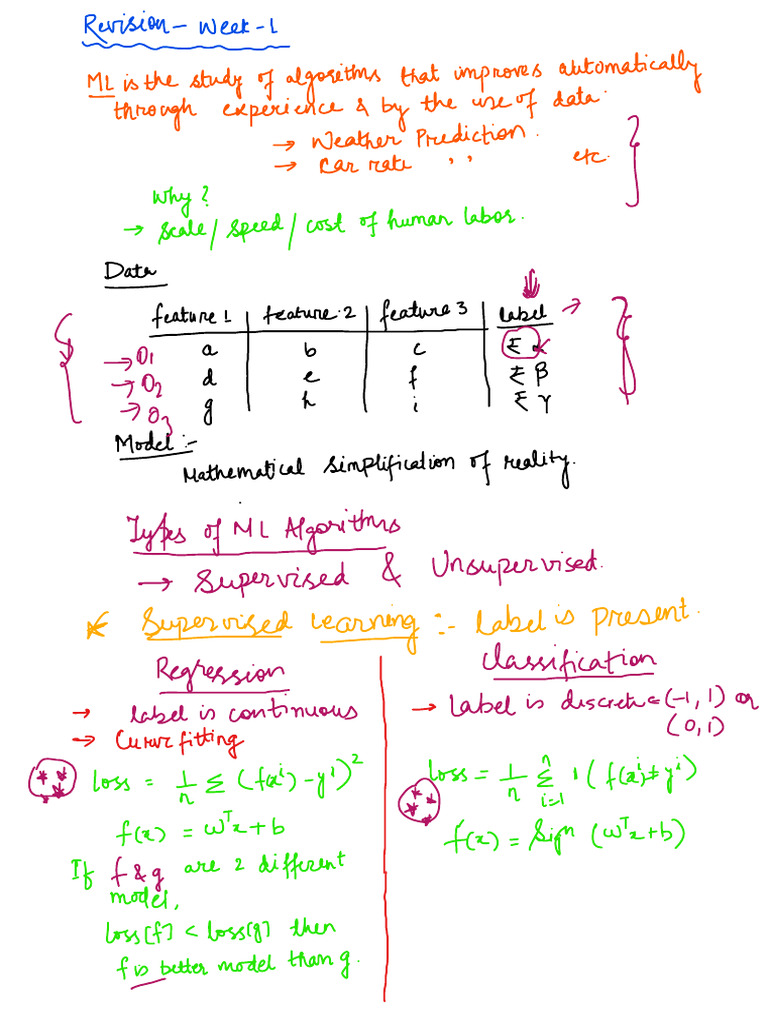 Revision - Week-1
ML is the study of algorithms that improves automatically
through experience & by the use of data.
→ Weather Prediction.
→ Car rate ,, etc.
Why?
→ Scale / Speed / cost of human labor.
Data
feature 1 | feature 2 | feature 3 | label →
→ O1 a b c ₹ α
→ O2 d e f ₹ β
→ O3 g h i ₹ γ
Model :-
Mathematical Simplification of reality.
Types of ML Algorithms
→ Supervised & Unsupervised.
* Supervised Learning :- Label is Present.
Regression
→ label is continuous
→ Curve fitting
loss = 1/n Σ (f(xⁱ) - yⁱ)²
f(x) = wᵀx + b
If f & g are 2 different
model,
loss[f] < loss[g] then
f is better model than g.
Classification
→ Label is discrete = (-1, 1) or
(0, 1)
loss = 1/n Σⁿᵢ₌₁ 1 (f(xⁱ) ≠ yⁱ)
f(x) = Sign (wᵀx + b)